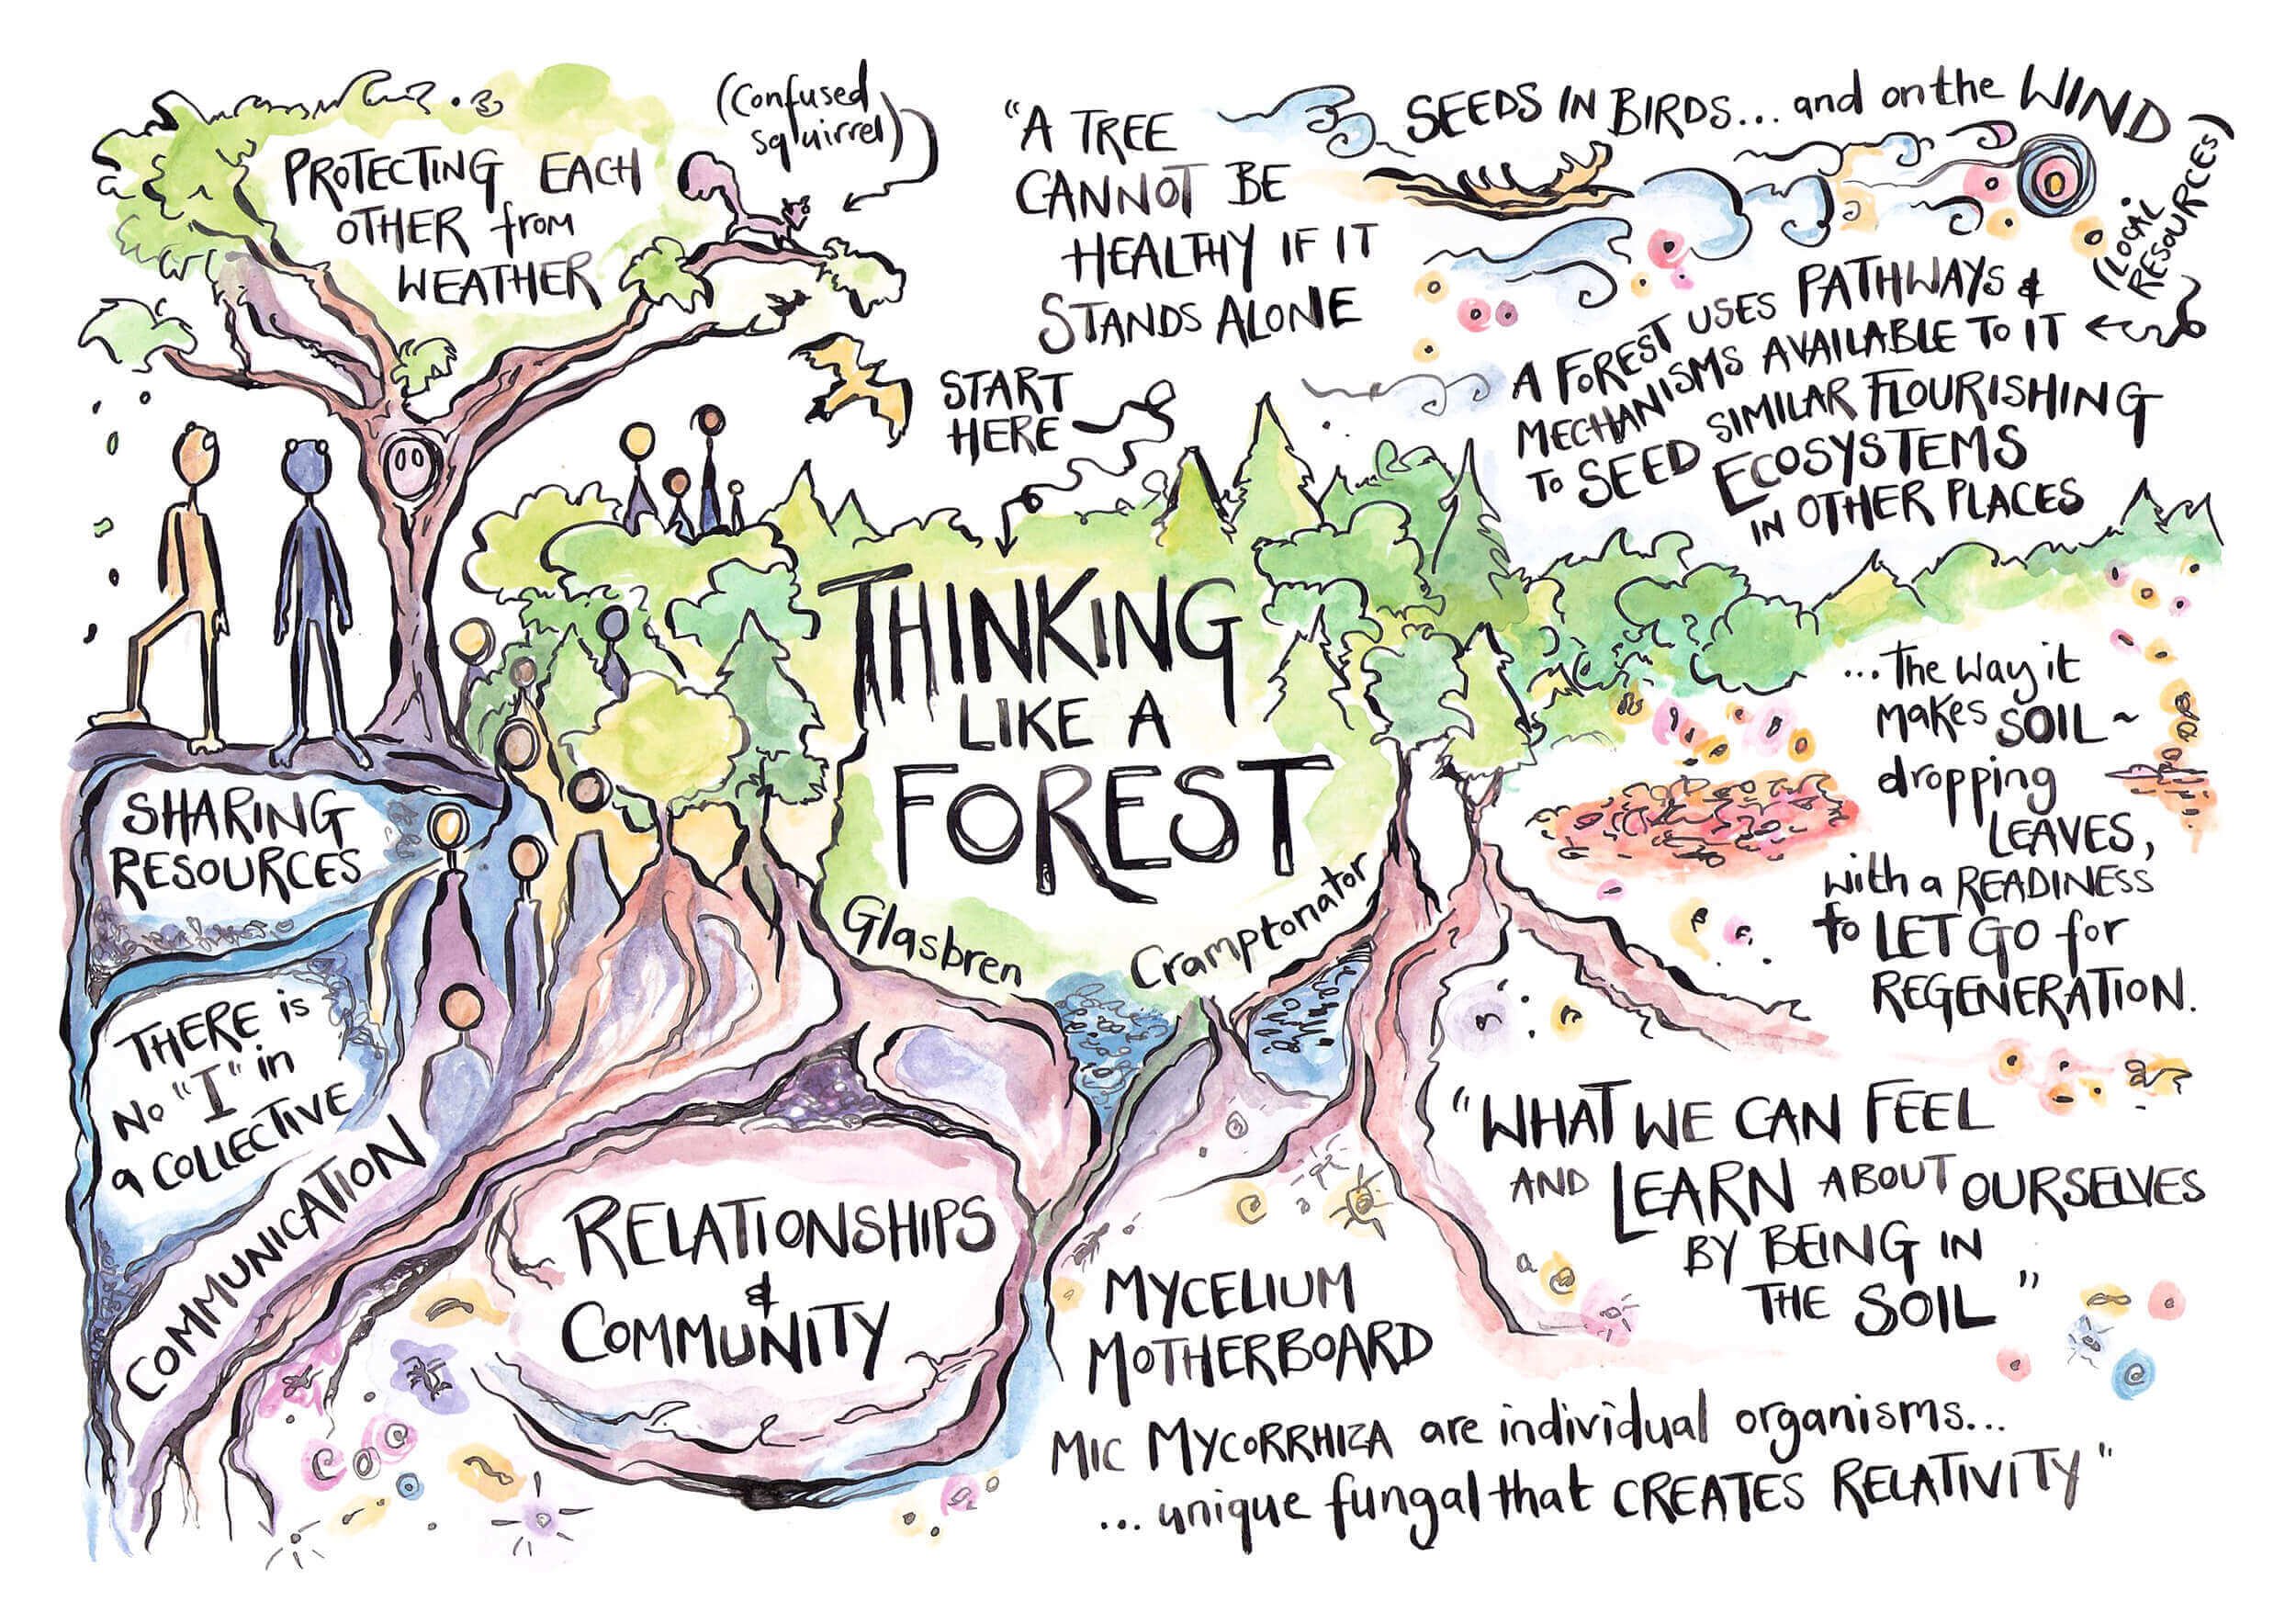 PROTECTING EACH
OTHER from
WEATHER
(Confused
squirrel)
"A TREE
CANNOT BE
HEALTHY IF IT
STANDS ALONE
START
HERE
SEEDS IN BIRDS... and on the WIND
(LOCAL
RESOURCES)
A FOREST USES PATHWAYS &
MECHANISMS AVAILABLE TO IT
TO SEED SIMILAR FLOURISHING
ECOSYSTEMS
IN OTHER PLACES
THINKING
LIKE A
FOREST
Glasbren
Cramptonator
...The way it
makes SOIL ~
dropping
LEAVES,
with a READINESS
to LET GO for
REGENERATION.
SHARING
RESOURCES
THERE is
No "I" in
a COLLECTIVE
COMMUNICATION
RELATIONSHIPS
&
COMMUNITY
"WHAT WE CAN FEEL
AND LEARN ABOUT OURSELVES
BY BEING IN
THE SOIL"
MYCELIUM
MOTHERBOARD
MIC MYCORRHIZA are individual organisms...
... unique fungal that CREATES RELATIVITY"